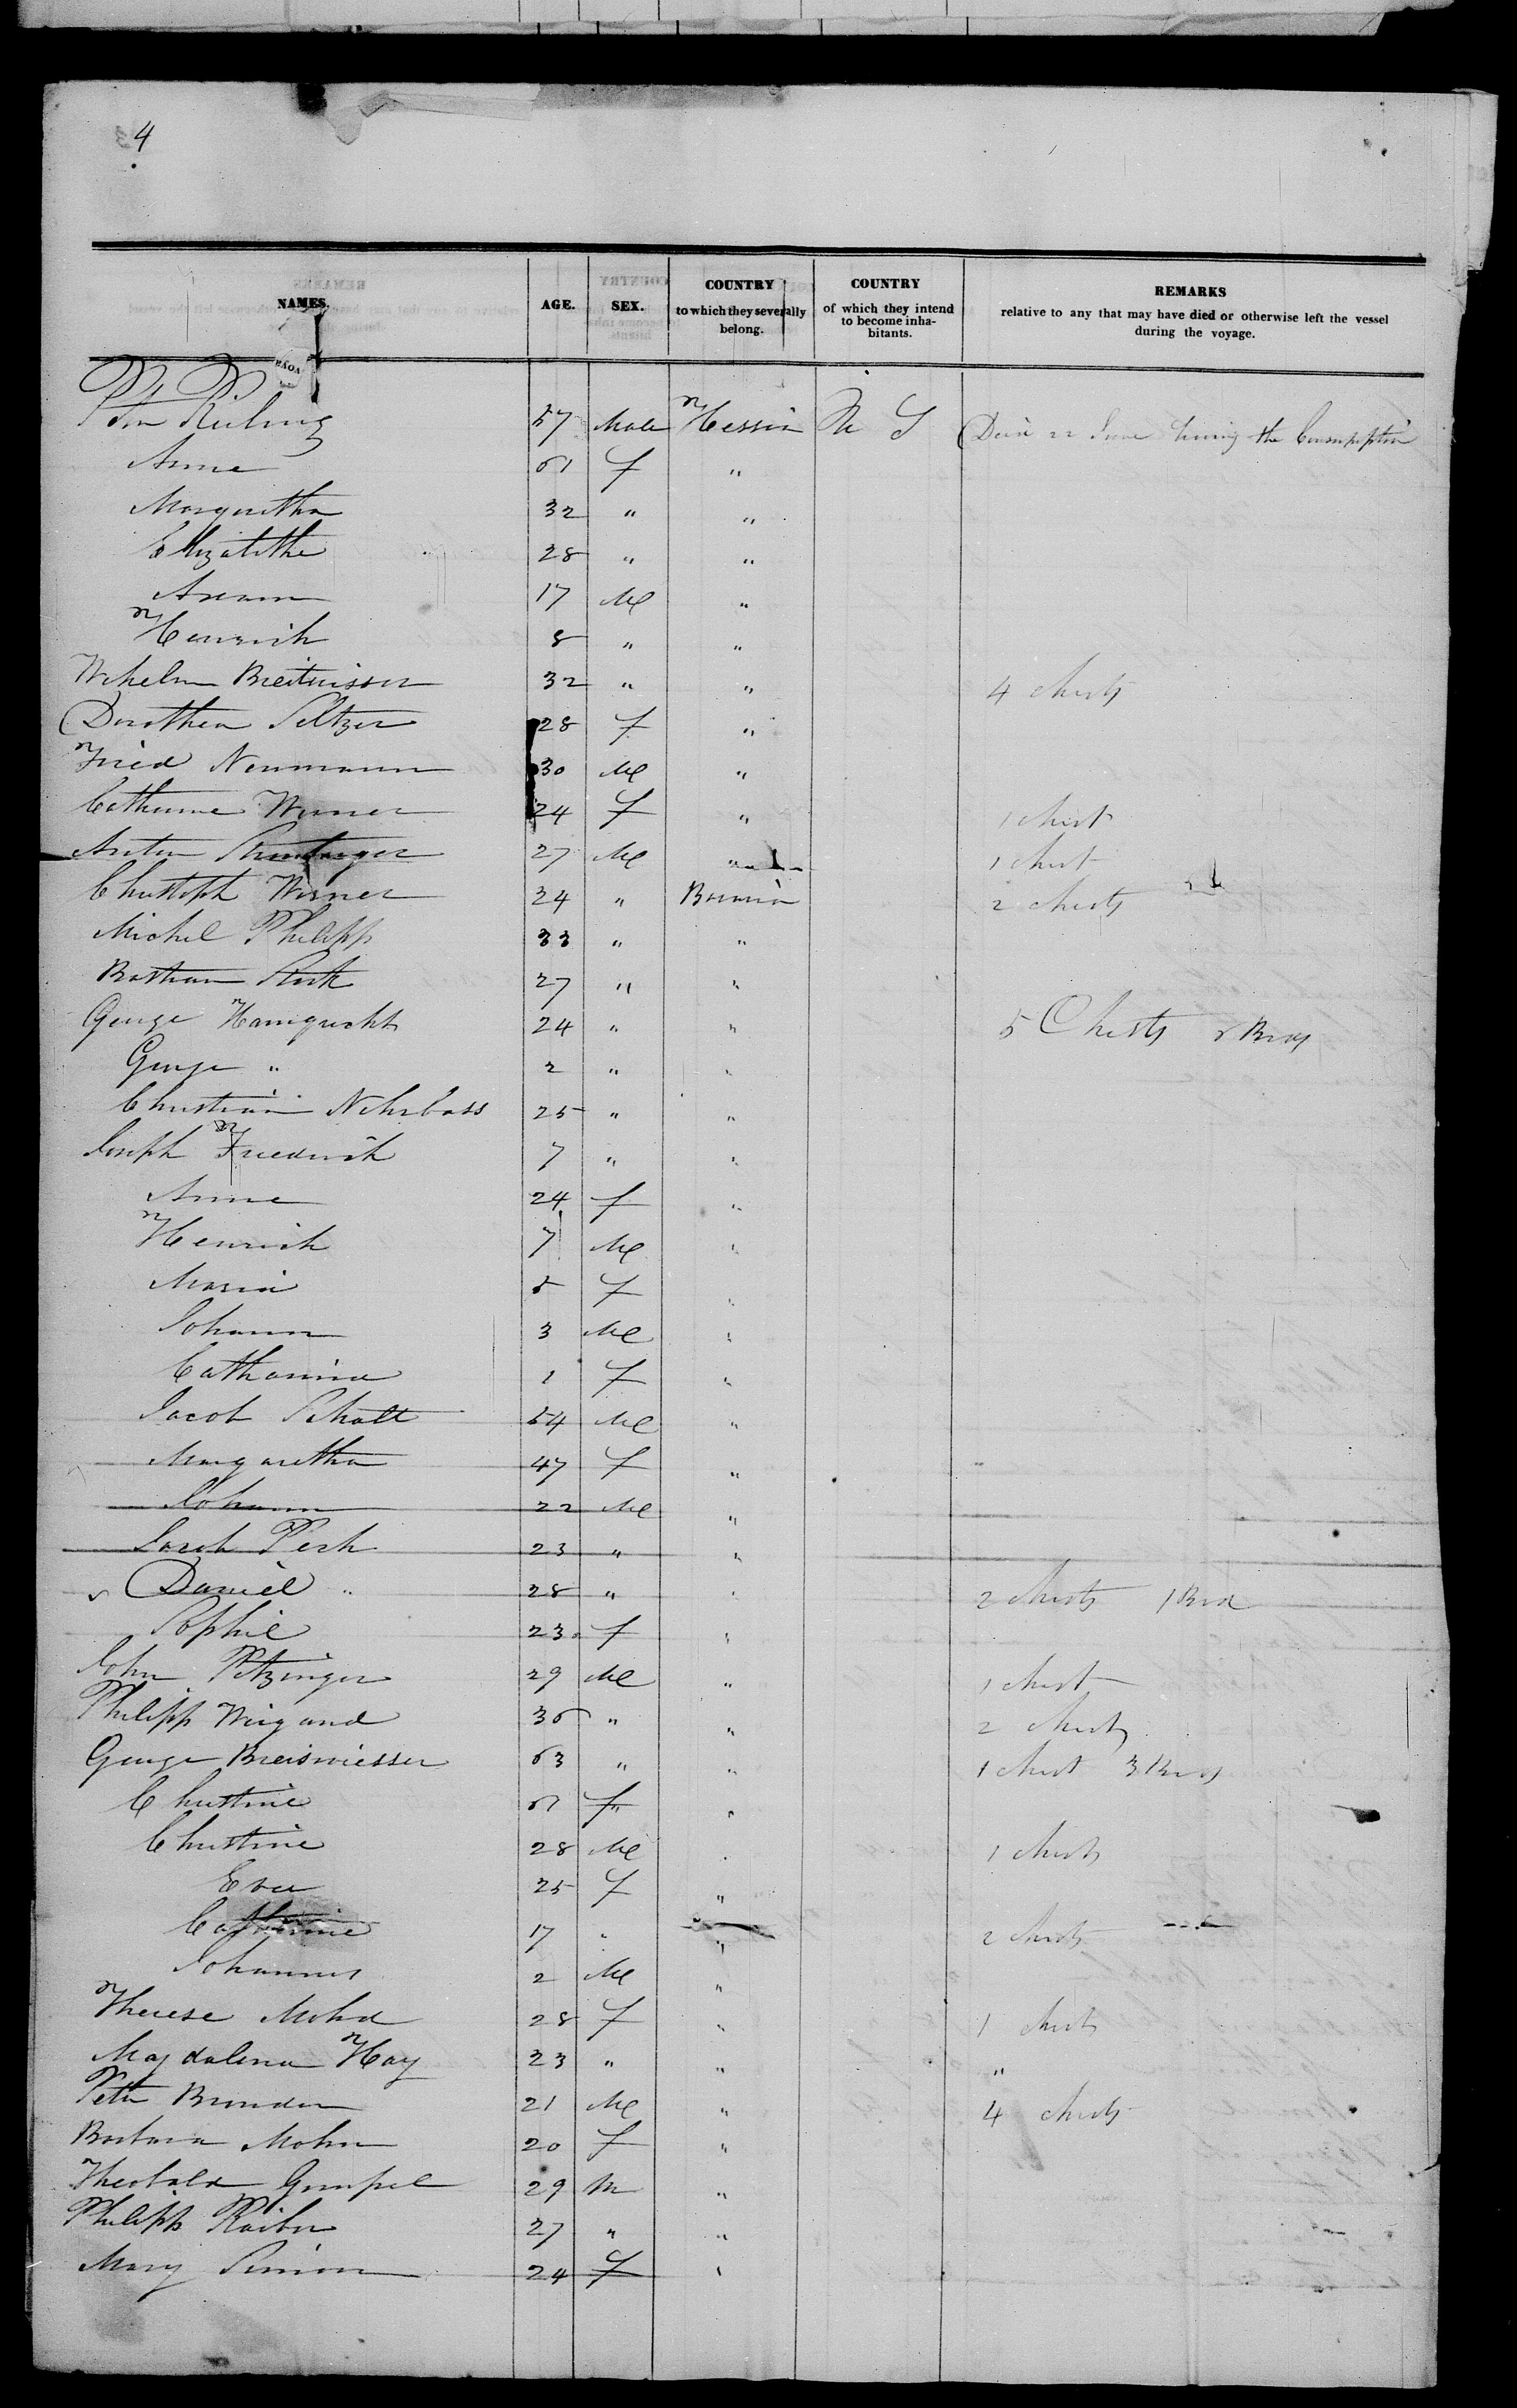 4
NAMES. AGE. SEX. COUNTRY to which they severally belong. COUNTRY of which they intend to become inhabitants. REMARKS relative to any that may have died or otherwise left the vessel during the voyage.
57 Male Hessia U S Died 22 June having the Consumption
Anne 61 f "
Margaretha 32 " "
Elizabethe 28 " "
17 M "
Heinrich 8 " "
Wilhelm 32 " " 4 chests
Dorothea Seltzer 28 f "
Fried Neumann 30 M "
Catherine Werner 24 f " 1 chest
Anton 27 M " 1 chest
Christoph Werner 24 " Bavaria 2 chests
Michel Philipp 33 " "
27 " "
George 24 " " 5 Chests 2 Box
George " 2 " "
Christian Nehrbass 25 " "
Joseph Friedrich 7 " "
Anne 24 f "
Heinrich 7 M "
Maria 5 f "
Johann 3 M "
Catharina 1 f "
Jacob Schalt 54 M "
Margaretha 47 f "
Johann 22 M "
Jacob Pesh 23 " "
Daniel " 28 " " 2 chests 1 Box
Sophie 23 f "
John Pitzinger 29 M " 1 chest
Philipp Wiegand 36 " " 2 chests
George Breiswiesser 63 " " 1 chest 3 Box
Christine 61 f "
Christine 28 M " 1 chest
Eva 25 f "
Catherine 17 " " 2 chests
Johannes 2 M "
Therese Mohd 28 f " 1 chest
Magdalena Hay 23 " " "
Peter Brunder 21 M " 4 chests
Barbara Mohn 20 f "
Theobald Gumpel 29 m "
Philipp Raiber 27 " "
Mary Simon 24 f "